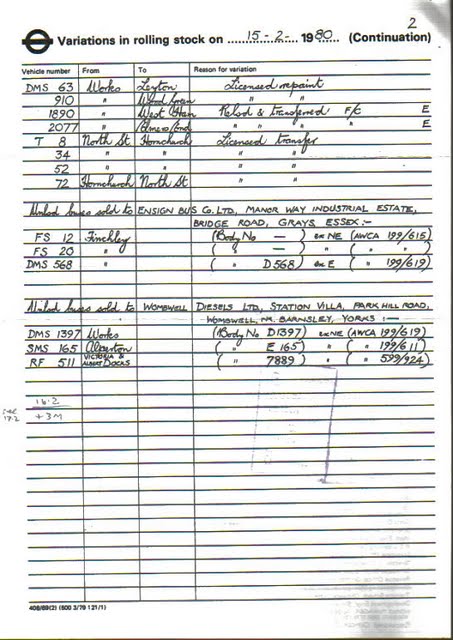 2
Variations in rolling stock on 15-2- 1980 (Continuation)
Vehicle number From To Reason for variation
DMS 63 Works Leyton Licensed repaint
910 " Wood Green " "
1890 " West Ham Relsd & transferred F/C E
2077 " " " " E
T 8 North St Hornchurch Licensed transfer
34 " " " "
52 " " " "
72 Hornchurch North St " "
Unlcd buses sold to ENSIGN BUS CO. LTD, MANOR WAY INDUSTRIAL ESTATE,
BRIDGE ROAD, GRAYS, ESSEX :-
FS 12 Finchley (Body No — ) ex NE (AWCA 199/615)
FS 20 " ( " — ) " ( " " )
DMS 568 " ( " D568) ex E ( " 199/619)
Unlcd buses sold to WOMBWELL DIESELS LTD, STATION VILLA, PARK HILL ROAD,
WOMBWELL, NR. BARNSLEY, YORKS :—
DMS 1397 Works (Body No D1397) ex NE (AWCA 199/619)
SMS 165 Alperton ( " E165) " ( " 199/611)
RF 511 VICTORIA & ALBERT DOCKS ( " 7889) " ( " 599/924)
18.2
+3M
17.2
408/69(2) (500 3/79 121/1)